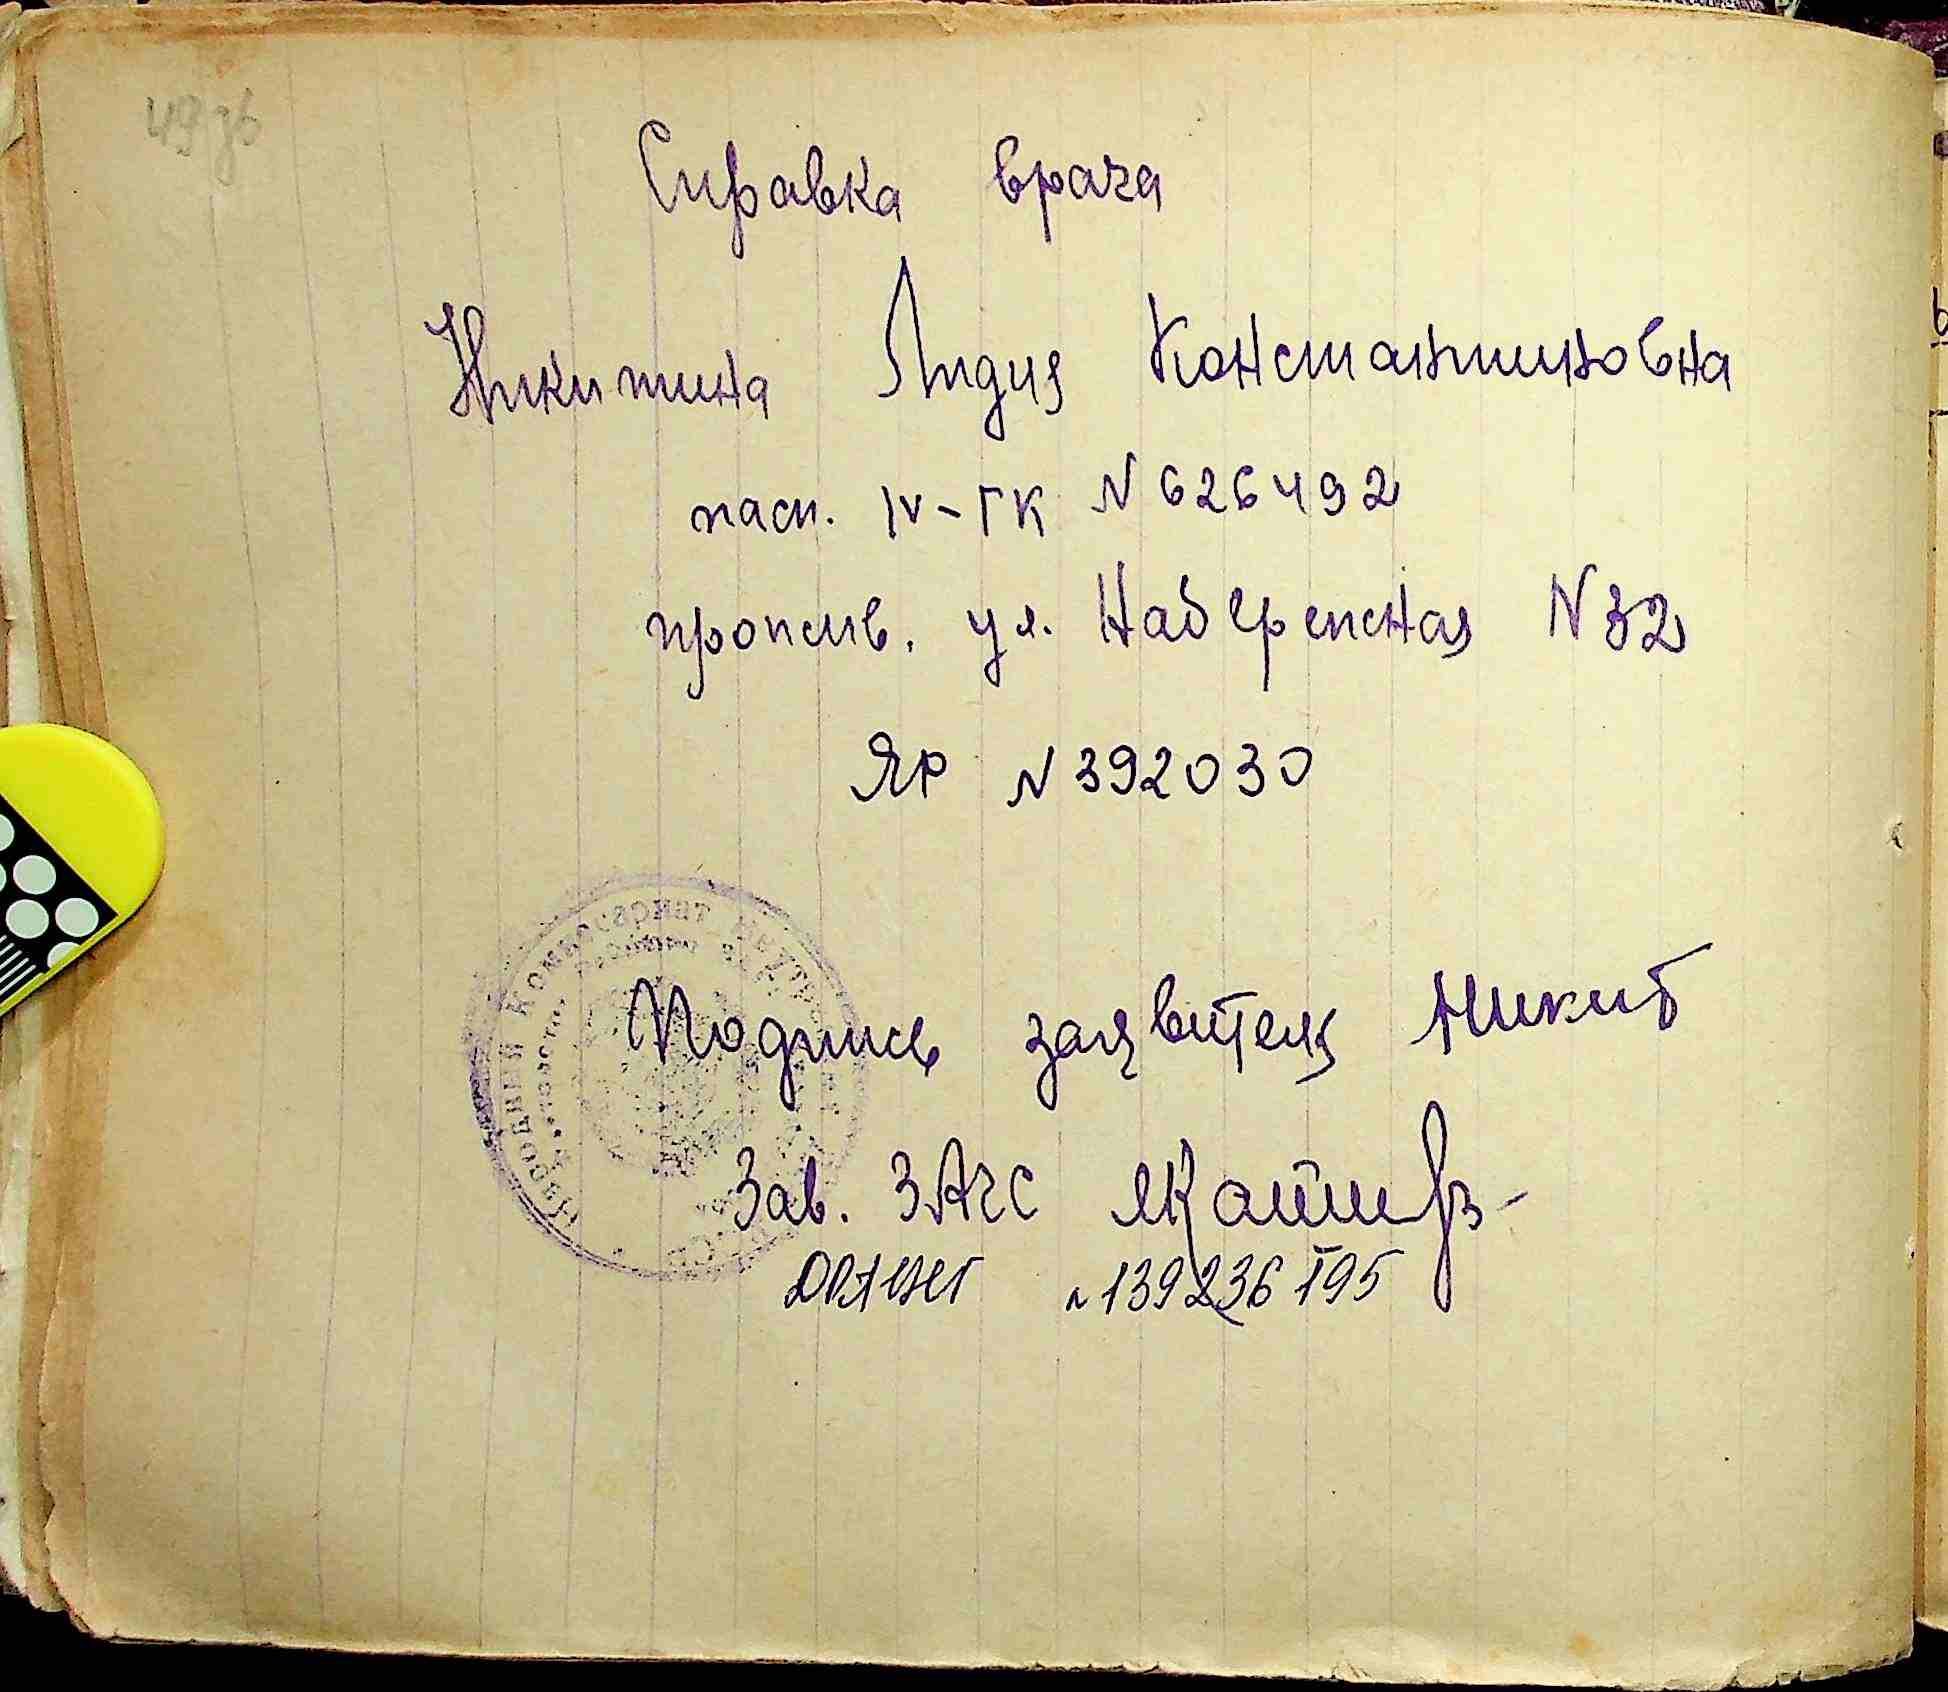 49 дв
Справка врача
Никитина Лидия Константиновна
пасп. IV-ГК N 626492
прожив. ул. Набережная N 32
ЯР N 392030
Народный Комиссариат
Подпись заявителя Никит
Зав. ЗАГС
N 139236 195